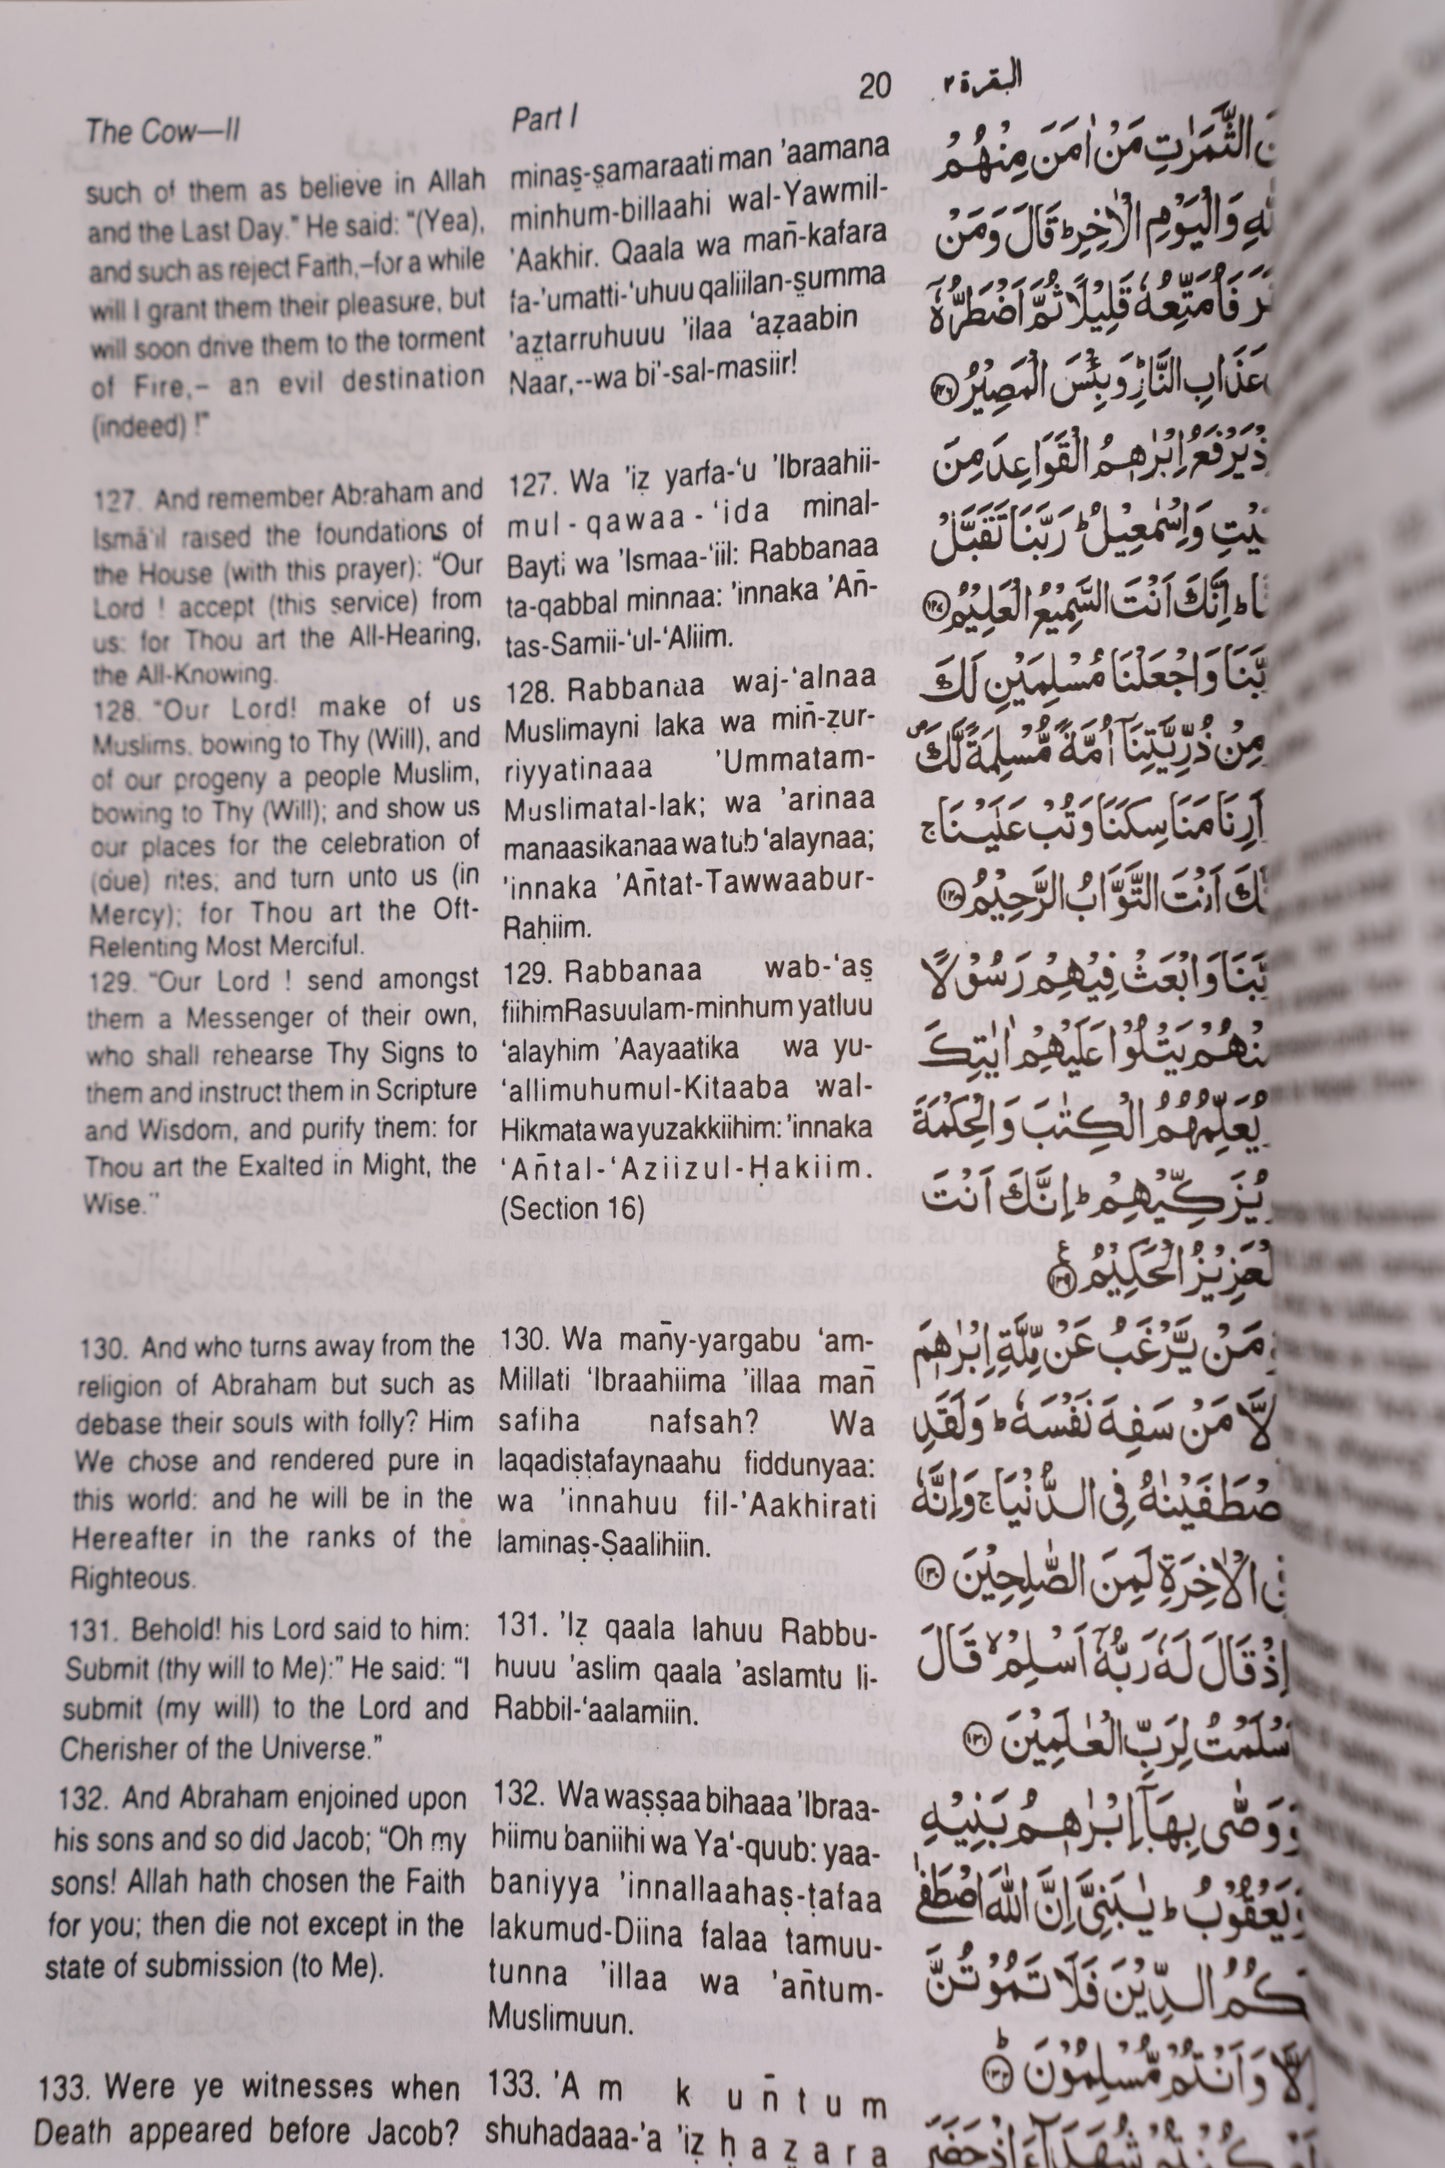 20
البقرة ٢
The Cow—II
Part I
such of them as believe in Allah
and the Last Day." He said: "(Yea),
and such as reject Faith,–for a while
will I grant them their pleasure, but
will soon drive them to the torment
of Fire,– an evil destination
(indeed) !"
127. And remember Abraham and
Ismā'il raised the foundations of
the House (with this prayer): "Our
Lord ! accept (this service) from
us: for Thou art the All-Hearing,
the All-Knowing.
128. "Our Lord! make of us
Muslims, bowing to Thy (Will), and
of our progeny a people Muslim,
bowing to Thy (Will); and show us
our places for the celebration of
(due) rites; and turn unto us (in
Mercy); for Thou art the Oft-
Relenting Most Merciful.
129. "Our Lord ! send amongst
them a Messenger of their own,
who shall rehearse Thy Signs to
them and instruct them in Scripture
and Wisdom, and purify them: for
Thou art the Exalted in Might, the
Wise."
130. And who turns away from the
religion of Abraham but such as
debase their souls with folly? Him
We chose and rendered pure in
this world: and he will be in the
Hereafter in the ranks of the
Righteous.
131. Behold! his Lord said to him:
Submit (thy will to Me):" He said: "I
submit (my will) to the Lord and
Cherisher of the Universe."
132. And Abraham enjoined upon
his sons and so did Jacob; "Oh my
sons! Allah hath chosen the Faith
for you; then die not except in the
state of submission (to Me).
133. Were ye witnesses when
Death appeared before Jacob?
minaṣ-ṣamaraati man 'aamana
minhum-billaahi wal-Yawmil-
'Aakhir. Qaala wa mañ-kafara
fa-'umatti-'uhuu qaliilan-ṣumma
'aẓtarruhuuu 'ilaa 'aẓaabin
Naar,--wa bi'-sal-masiir!
127. Wa 'iẓ yarfa-'u 'Ibraahii-
mul-qawaa-'ida minal-
Bayti wa 'Ismaa-'iil: Rabbanaa
ta-qabbal minnaa: 'innaka 'Añ-
tas-Samii-'ul-'Aliim.
128. Rabbanaa waj-'alnaa
Muslimayni laka wa miñ-ẓur-
riyyatinaaa 'Ummatam-
Muslimatal-lak; wa 'arinaa
manaasikanaa wa tub 'alaynaa;
'innaka 'Añtat-Tawwaabur-
Raḥiim.
129. Rabbanaa wab-'aṣ
fiihimRasuulam-minhum yatluu
'alayhim 'Aayaatika wa yu-
'allimuhumul-Kitaaba wal-
Hikmata wa yuzakkiihim: 'innaka
'Añtal-'Aziizul-Ḥakiim.
(Section 16)
130. Wa mañy-yargabu 'am-
Millati 'Ibraahiima 'illaa mañ
safiha nafsah? Wa
laqadiṣṭafaynaahu fiddunyaa:
wa 'innahuu fil-'Aakhirati
laminaṣ-Ṣaalihiin.
131. 'Iẓ qaala lahuu Rabbu-
huuu 'aslim qaala 'aslamtu li-
Rabbil-'aalamiin.
132. Wa waṣṣaa bihaaa 'Ibraa-
hiimu baniihi wa Ya'-quub: yaa-
baniyya 'innallaahaṣ-ṭafaa
lakumud-Diina falaa tamuu-
tunna 'illaa wa 'añtum-
Muslimuun.
133. 'Am kuñtum
shuhadaaa-'a 'iẓ ḥaẓara
الثَّمَرٰتِ مَنْ اٰمَنَ مِنْهُمْ
وَالْيَوْمِ الْاٰخِرِ ؕ قَالَ وَمَنْ
فَاُمَتِّعُهٗ قَلِيْلًا ثُمَّ اَضْطَرُّهٗۤ
عَذَابِ النَّارِ ؕ وَبِئْسَ الْمَصِيْرُ ۝١٢٦
يَرْفَعُ اِبْرٰهِمُ الْقَوَاعِدَ مِنَ
وَاِسْمٰعِيْلُ ؕ رَبَّنَا تَقَبَّلْ
اِنَّكَ اَنْتَ السَّمِيْعُ الْعَلِيْمُ ۝١٢٧
وَاجْعَلْنَا مُسْلِمَيْنِ لَكَ
مِنْ ذُرِّيَّتِنَاۤ اُمَّةً مُّسْلِمَةً لَّكَ ۪
اَرِنَا مَنَاسِكَنَا وَتُبْ عَلَيْنَا ۚ
اَنْتَ التَّوَّابُ الرَّحِيْمُ ۝١٢٨
وَابْعَثْ فِيْهِمْ رَسُوْلًا
يَتْلُوْا عَلَيْهِمْ اٰيٰتِكَ
يُعَلِّمُهُمُ الْكِتٰبَ وَالْحِكْمَةَ
يُزَكِّيْهِمْ ؕ اِنَّكَ اَنْتَ
لْعَزِيْزُ الْحَكِيْمُ ۝١٢٩ ع
مَنْ يَّرْغَبُ عَنْ مِّلَّةِ اِبْرٰهٖمَ
لَّا مَنْ سَفِهَ نَفْسَهٗ ؕ وَلَقَدِ
صْطَفَيْنٰهُ فِى الدُّنْيَا ۚ وَاِنَّهٗ
الْاٰخِرَةِ لَمِنَ الصّٰلِحِيْنَ ۝١٣٠
اِذْ قَالَ لَهٗ رَبُّهٗۤ اَسْلِمْ ۙ قَالَ
سْلَمْتُ لِرَبِّ الْعٰلَمِيْنَ ۝١٣١
وَوَصّٰى بِهَاۤ اِبْرٰهِمُ بَنِيْهِ
وَيَعْقُوْبُ ؕ يٰبَنِىَّ اِنَّ اللّٰهَ اصْطَفٰى
كُمُ الدِّيْنَ فَلَا تَمُوْتُنَّ
لَّا وَاَنْتُمْ مُّسْلِمُوْنَ ؕ ۝١٣٢
كُنْتُمْ شُهَدَآءَ اِذْ حَضَرَ